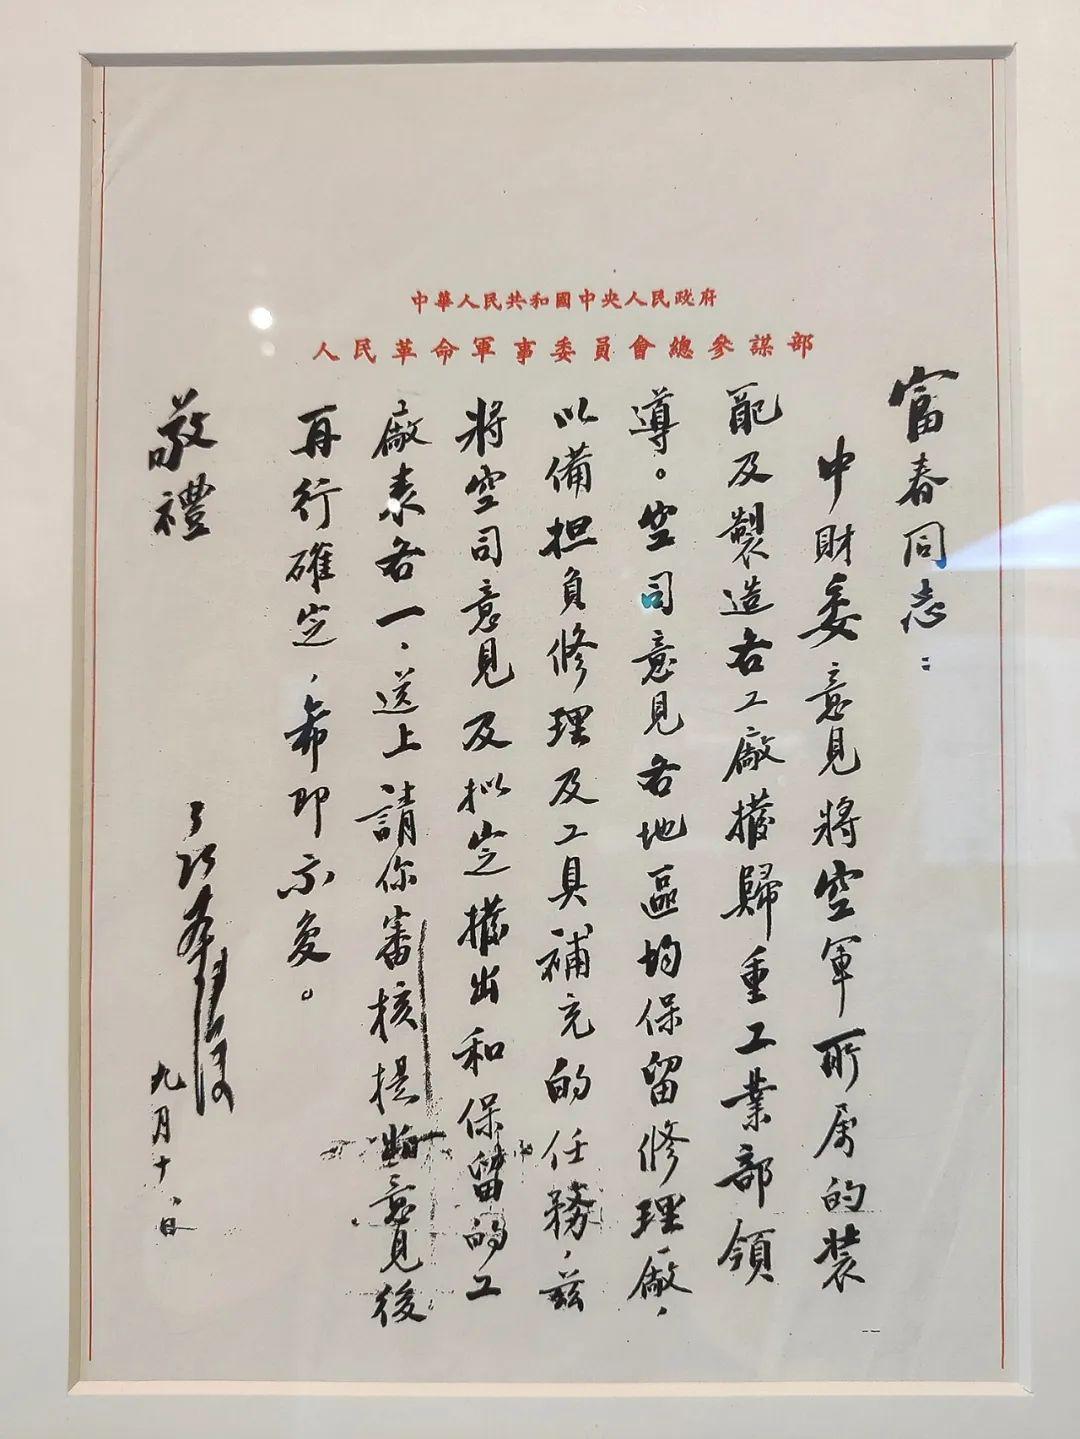 中華人民共和國中央人民政府
人民革命軍事委員會總參謀部
富春同志：
中財委意見將空軍所属的装
配及製造各工廠撥歸重工業部領
導。空司意見各地區均保留修理廠，
以備担負修理及工具補充的任務，兹
將空司意見及拟定撥出和保留的工
廠表各一、送上請你審核提出意見後
再行確定，希即示复。
敬禮
九月十八日